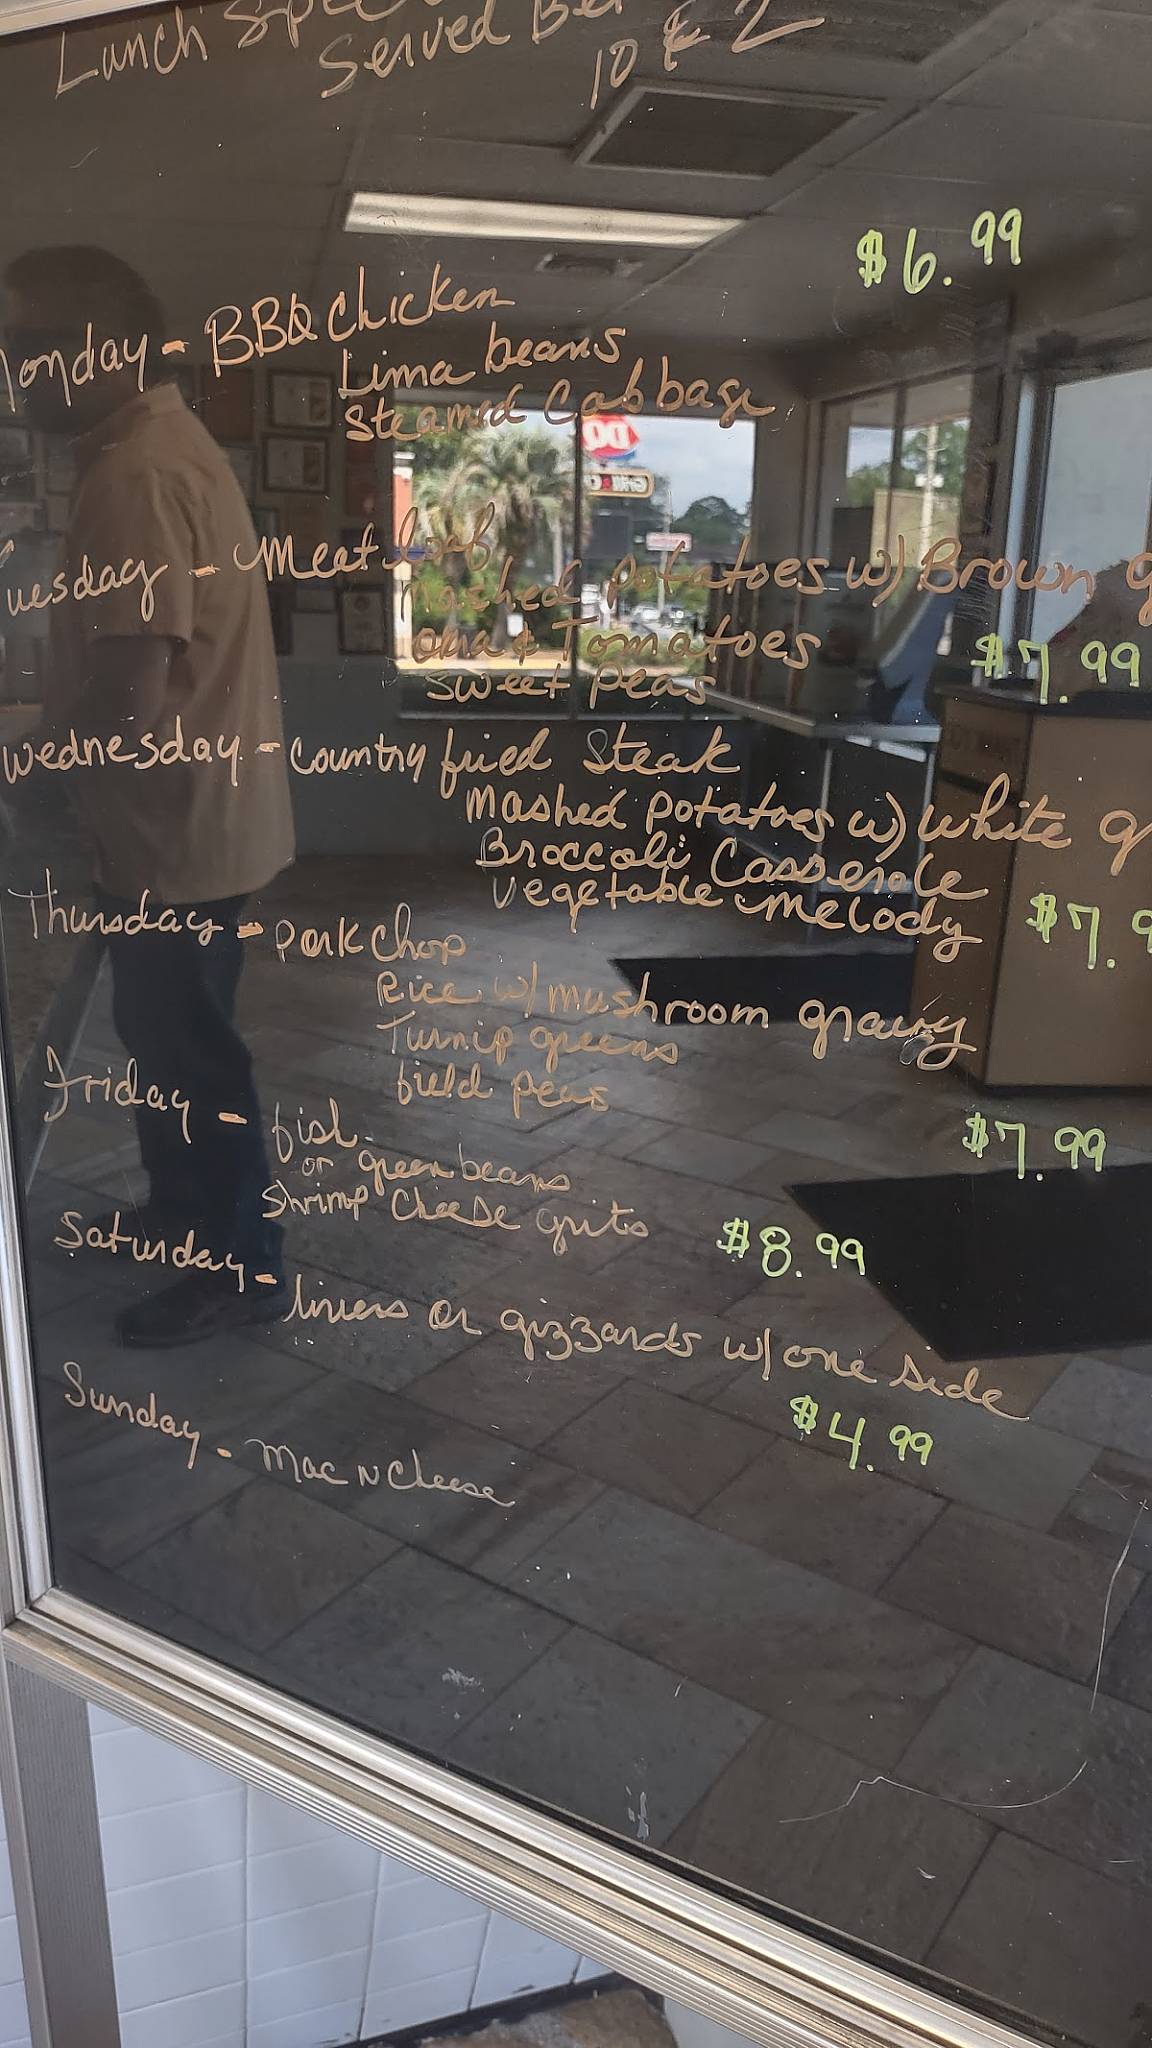 Lunch Spe
Served Be
10 & 2
$6.99
Monday - BBQ Chicken
Lima beans
Steamed Cabbage
DQ
Tuesday - Meat loaf
mashed potatoes w/ Brown g
okra & Tomatoes
$7.99
sweet peas
Wednesday - Country fried Steak
mashed potatoes w/ white g
Broccoli Casserole
vegetable melody
$7.9
Thursday - Pork Chop
Rice w/ mushroom gravy
Turnip greens
field peas
$7.99
Friday - fish
or green beans
Shrimp Cheese grits
$8.99
Saturday - livers or gizzards w/ one side
$4.99
Sunday - Mac N Cheese